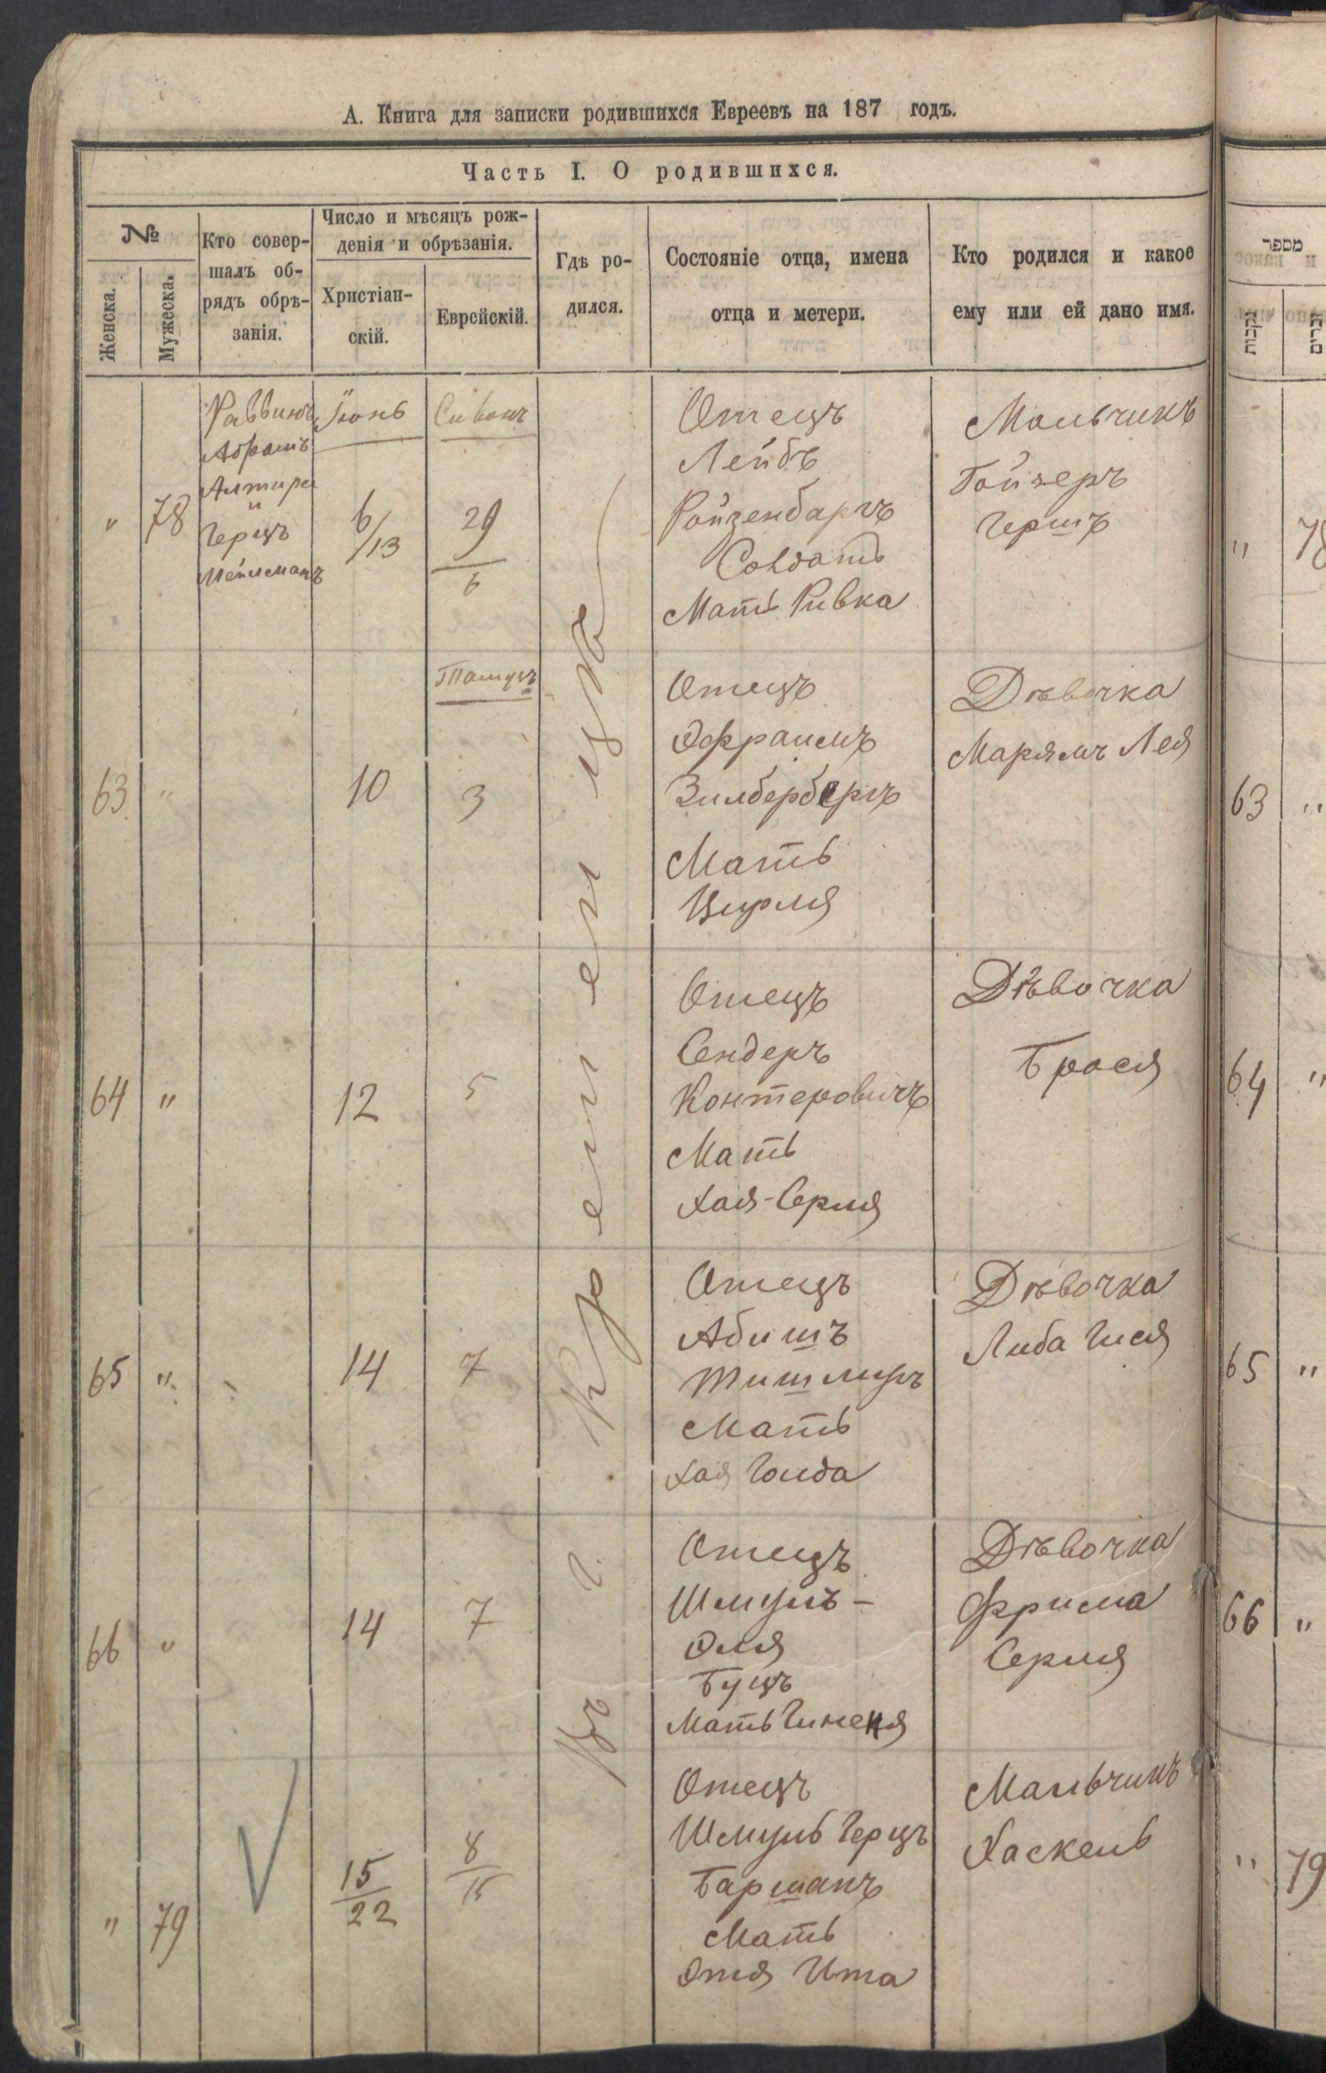 А. Книга для записки родившихся Евреевъ на 187 годъ.
Часть I. О родившихся.
№
Женска.
Мужеска.
Кто совер-
шалъ об-
рядъ обрѣ-
занія.
Число и мѣсяцъ рож-
денія и обрѣзанія.
Христіан-
скій.
Еврейскій.
Гдѣ ро-
дился.
Состояніе отца, имена
отца и метери.
Кто родился и какое
ему или ей дано имя.
מספר
נקבות
זכרים
Въ г. Кременецѣ
" 78
Раввинъ
Абрамъ
и
Герцъ
Мейлманъ
Іюнь
6/13
Сиванъ
29
6
Отецъ
Лейбъ
Ройзенбаргъ
Солдатъ
Мать Ривка
Мальчикъ
Гойзеръ
Гершъ
" 78
63 "
10
Тамузъ
3
Отецъ
Эфраимъ
Зилбербергъ
Мать
Цирля
Дѣвочка
Марямъ Лея
63 "
64 "
12
5
Отецъ
Сендеръ
Контеровичъ
Мать
Хая-Серля
Дѣвочка
Брася
64 "
65 "
14
7
Отецъ
Абишъ
Тишлеръ
Мать
Хая Голда
Дѣвочка
Либа Гися
65 "
66 "
14
7
Отецъ
Шмуль-
Эля
Буцъ
Мать Гиненя
Дѣвочка
Фрима
Серля
66 "
" 79
15
22
8
15
Отецъ
Шмуль Герцъ
Баршапъ
Мать
Этя Ита
Мальчикъ
Хаскель
" 79